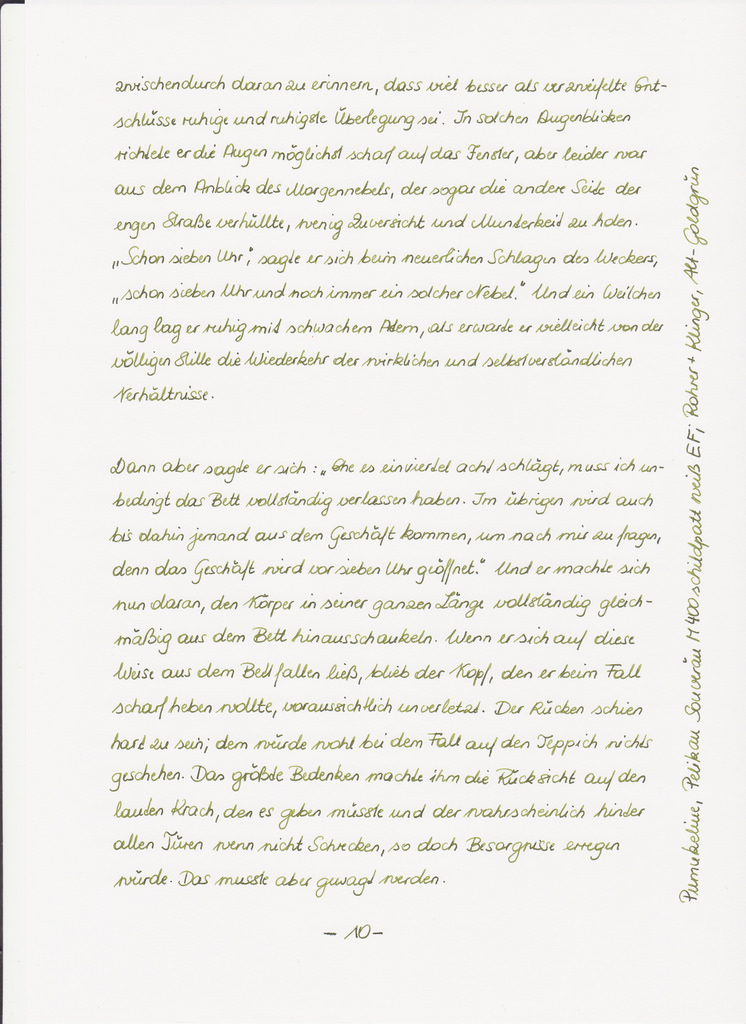 zwischendurch daran zu erinnern, dass viel besser als verzweifelte Ent-
schlüsse ruhige und ruhigste Überlegung sei. In solchen Augenblicken
richtete er die Augen möglichst scharf auf das Fenster, aber leider war
aus dem Anblick des Morgennebels, der sogar die andere Seite der
engen Straße verhüllte, wenig Zuversicht und Munterkeit zu holen.
„Schon sieben Uhr“, sagte er sich beim neuerlichen Schlagen des Weckers,
„schon sieben Uhr und noch immer ein solcher Nebel.“ Und ein Weilchen
lang lag er ruhig mit schwachem Atem, als erwarte er vielleicht von der
völligen Stille die Wiederkehr der wirklichen und selbstverständlichen
Verhältnisse.
Dann aber sagte er sich: „Ehe es einviertel acht schlägt, muss ich un-
bedingt das Bett vollständig verlassen haben. Im übrigen wird auch
bis dahin jemand aus dem Geschäft kommen, um nach mir zu fragen,
denn das Geschäft wird vor sieben Uhr geöffnet.“ Und er machte sich
nun daran, den Körper in seiner ganzen Länge vollständig gleich-
mäßig aus dem Bett hinauszuschaukeln. Wenn er sich auf diese
Weise aus dem Bett fallen ließ, blieb der Kopf, den er beim Fall
scharf heben wollte, voraussichtlich unverletzt. Der Rücken schien
hart zu sein; dem würde wohl bei dem Fall auf den Teppich nichts
geschehen. Das größte Bedenken machte ihm die Rücksicht auf den
lauten Krach, den es geben müsste und der wahrscheinlich hinter
allen Türen wenn nicht Schrecken, so doch Besorgnisse erregen
würde. Das musste aber gewagt werden.
- 10 -
Pumukeline, Pelikan Souverän M 400 schildpatt weiß EF; Rohrer + Klinger, Alt-Goldgrün